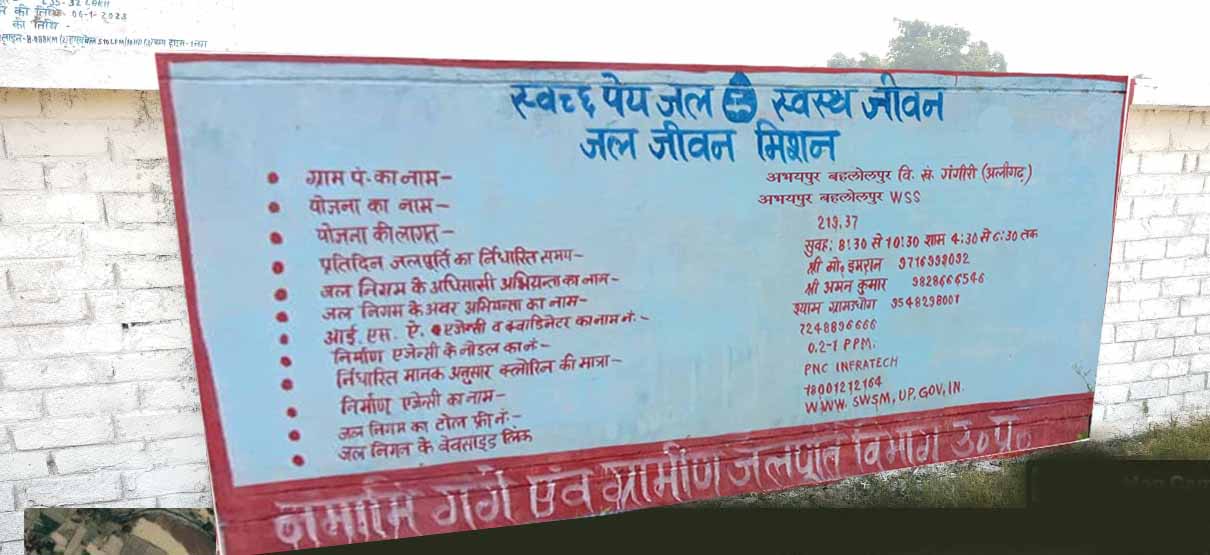 की तिथि- 06-1-2023
की तिथि -
स्वच्छ पेय जल स्वस्थ जीवन
जल जीवन मिशन
ग्राम पं. का नाम- अभयपुर बहलोलपुर वि. सं. गंगीरी (अलीगढ़)
योजना का नाम- अभयपुर बहलोलपुर WSS
योजना की लागत- 219.37
प्रतिदिन जलपूर्ति का र्निधारित समय- सुवह: 8:30 से 10:30 शाम 4:30 से 6:30 तक
जल निगम के अधिसासी अभियन्ता का नाम- श्री मो. इमरान 9716998092
जल निगम के अवर अभियन्ता का नाम- श्री अमन कुमार 9828666546
आई. एस. ऐ. एजेन्सी व क्वाडिनेटर का नाम नं:- श्याम ग्रामउधोग 9548298001
निर्माण एजेन्सी के नोडल का नं:- 7248896666
र्निधारित मानक अनुसार क्लोरिन की मात्रा- 0.2-1 PPM.
निर्माण एजेन्सी का नाम- PNC INFRATECH
जल निगम का टोल फ्री नं:- 18001212164
जल निगम के वेवसाइड लिंक WWW. SWSM, UP. GOV, IN.
नमामि गंगे एंव ग्रामीण जलपूर्ति विभाग उ०प्र०